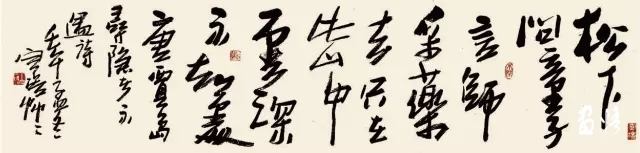 松下
問童子
言師
采藥
去只在
此山中
雲深
不知處
唐賈島
尋隱者不
遇詩
壬午